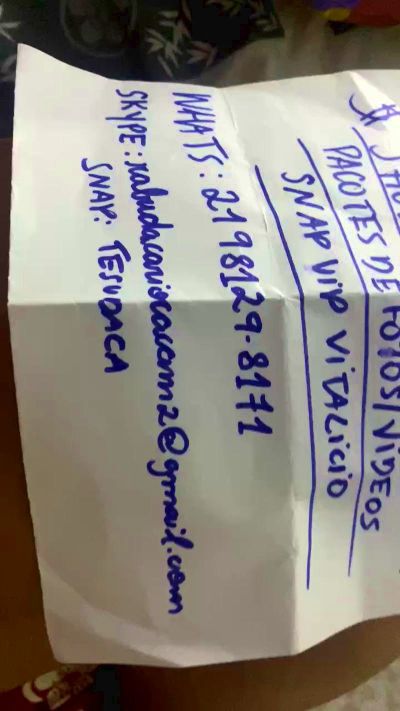 PACOTES DE FOTOS/VIDEOS
SNAP VIP VITALICIO
WHATS: 2198129-8171
SKYPE: rabudacariocacam2@gmail.com
SNAP: TESUDACA